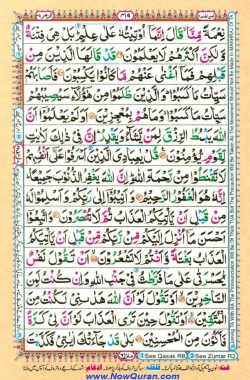 نِعْمَةً مِّنَّا ۙ قَالَ اِنَّمَاۤ اُوْتِيْتُهٗ عَلٰى عِلْمٍ ؕ بَلْ هِيَ فِتْنَةٌ
وَّلٰكِنَّ اَكْثَرَهُمْ لَا يَعْلَمُوْنَ قَدْ قَالَهَا الَّذِيْنَ مِنْ
قَبْلِهِمْ فَمَاۤ اَغْنٰى عَنْهُمْ مَّا كَانُوْا يَكْسِبُوْنَ فَاَصَابَهُمْ
سَيِّاٰتُ مَا كَسَبُوْا ؕ وَالَّذِيْنَ ظَلَمُوْا مِنْ هٰۤؤُلَآءِ سَيُصِيْبُهُمْ
سَيِّاٰتُ مَا كَسَبُوْا ۙ وَمَا هُمْ بِمُعْجِزِيْنَ اَوَلَمْ يَعْلَمُوْۤا اَنَّ
اللّٰهَ يَبْسُطُ الرِّزْقَ لِمَنْ يَّشَآءُ وَيَقْدِرُ ؕ اِنَّ فِيْ ذٰلِكَ لَاٰيٰتٍ
لِّقَوْمٍ يُّؤْمِنُوْنَ قُلْ يٰعِبَادِيَ الَّذِيْنَ اَسْرَفُوْا عَلٰۤى اَنْفُسِهِمْ
لَا تَقْنَطُوْا مِنْ رَّحْمَةِ اللّٰهِ ؕ اِنَّ اللّٰهَ يَغْفِرُ الذُّنُوْبَ جَمِيْعًا ؕ
اِنَّهٗ هُوَ الْغَفُوْرُ الرَّحِيْمُ وَاَنِيْبُوْۤا اِلٰى رَبِّكُمْ وَاَسْلِمُوْا لَهٗ
مِنْ قَبْلِ اَنْ يَّاْتِيَكُمُ الْعَذَابُ ثُمَّ لَا تُنْصَرُوْنَ وَاتَّبِعُوْۤا
اَحْسَنَ مَاۤ اُنْزِلَ اِلَيْكُمْ مِّنْ رَّبِّكُمْ مِّنْ قَبْلِ اَنْ يَّاْتِيَكُمُ
الْعَذَابُ بَغْتَةً وَّاَنْتُمْ لَا تَشْعُرُوْنَ اَنْ تَقُوْلَ نَفْسٌ
يّٰحَسْرَتٰى عَلٰى مَا فَرَّطْتُّ فِيْ جَنْۢبِ اللّٰهِ وَاِنْ كُنْتُ لَمِنَ
السّٰخِرِيْنَ اَوْ تَقُوْلَ لَوْ اَنَّ اللّٰهَ هَدٰىنِيْ لَكُنْتُ مِنَ
الْمُتَّقِيْنَ اَوْ تَقُوْلَ حِيْنَ تَرَى الْعَذَابَ لَوْ اَنَّ لِيْ كَرَّةً
فَاَكُوْنَ مِنَ الْمُحْسِنِيْنَ بَلٰى قَدْ جَآءَتْكَ اٰيٰتِيْ فَكَذَّبْتَ
See Qasas R8
See Zumar R2
www.NowQuran.com